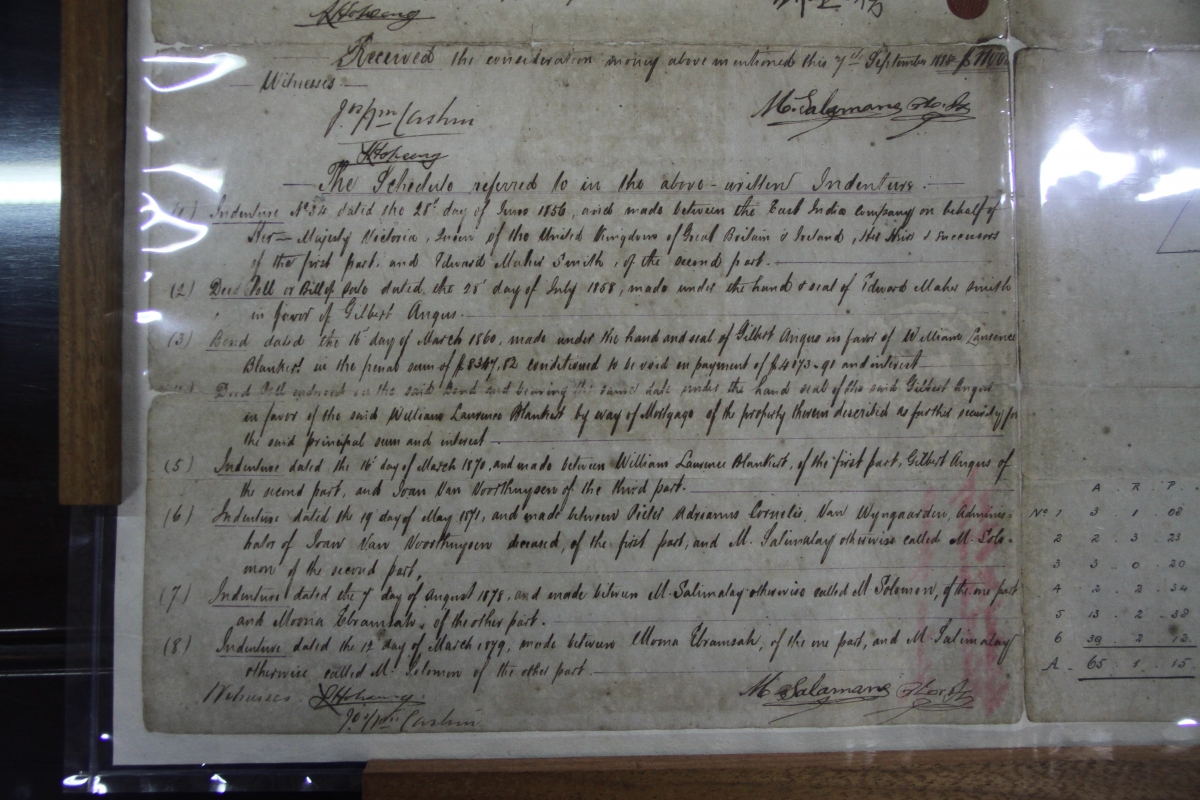 Received the consideration money above mentioned this 7th September
Witnesses
M. Salamane
The Schedule referred to in the above-written Indenture.
(1) Indenture No 34 dated the 28th day of June 1856, and made between the East India Company on behalf of
Her Majesty Victoria, Queen of the United Kingdom of Great Britain & Ireland, Her Heirs & Successors
of the first part, and Edward Maher Smith, of the second part.
(2) Deed Poll or Bill of Sale dated the 28th day of July 1858, made under the hand & seal of Edward Maher Smith
in favor of Gilbert Angus.
(3) Bond dated the 16th day of March 1860, made under the hand and seal of Gilbert Angus in favor of William Laurence
Blanket in the penal sum of $8347.82 conditioned to be void on payment of $4173.91 and interest
Deed Poll endorsed on the said Bond and bearing the same date under the hand seal of the said Gilbert Angus
in favor of the said William Laurence Blanket by way of Mortgage of the property therein described as further security for
the said principal sum and interest
(5) Indenture dated the 16th day of March 1870, and made between William Laurence Blanket, of the first part, Gilbert Angus of
the second part, and Joan Van Voorthuysen of the third part.
(6) Indenture dated the 19 day of May 1871, and made between Pieter Adrianus Cornelis Van Wyngaarden, Adminis-
trator of Joan Van Voorthuysen deceased, of the first part, and M. Salimalay otherwise called M. Solo-
mon of the second part,
(7) Indenture dated the 7 day of August 1878, and made between M. Salimalay otherwise called M Solomon, of the one part
and Moona Ebramsah, of the other part.
(8) Indenture dated the 12 day of March 1879, made between Moona Ebramsah, of the one part, and M. Salimalay
otherwise called M. Solomon of the other part
Witnesses
M. Salamane
A. R. P.
No 1 3 1 08
2 2 3 23
3 3 0 20
4 2 2 34
5 13 2 38
6 39 2 12
A. 65 1 15